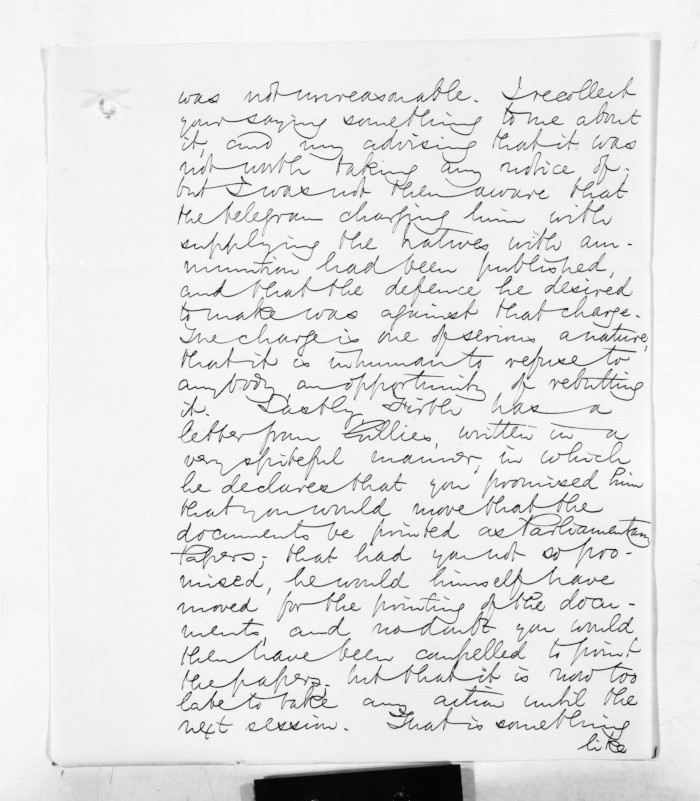 was not unreasonable. I recollect
your saying something to me about
it, and my advising that it was
not worth taking any notice of.
but I was not then aware that
the telegram charging him with
supplying the natives with am-
munition had been published,
and that the defence he desired
to make was against that charge.
The charge is one of serious a nature,
that it is inhuman to refuse to
anybody an opportunity of rebutting
it. Lastly Firth has a
letter from Gillies, written in a
very spiteful manner, in which
he declares that you promised him
that you would move that the
documents be printed as Parliamentary
Papers; that had you not so pro-
mised, he would himself have
moved for the printing of the docu-
ments, and no doubt you would
then have been compelled to print
the papers, but that it is now too
late to take any action until the
next session. That is something
like